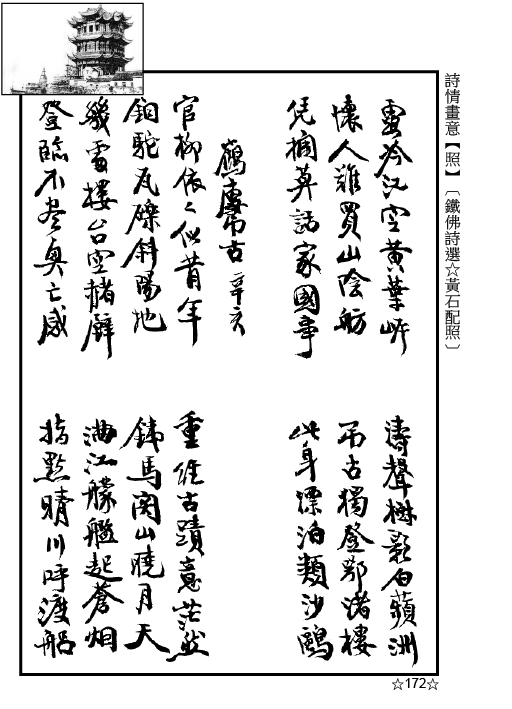 詩情畫意【照】〔鐵佛詩選☆黃石配照〕
雲冷江空黃葉岸
濤聲樹影白蘋洲
懷人難買山陰舫
吊古獨登鄂渚樓
莫話家國事
此身漂泊類沙鷗
鶴樓吊古 辛亥
官柳依〻似昔年
重經古蹟意茫然
銅駝瓦礫斜陽地
鐵馬關山曉月天
幾處樓台空赭壁
滿江艨艦起蒼烟
登臨不盡興亡感
指點晴川呼渡船
☆172☆